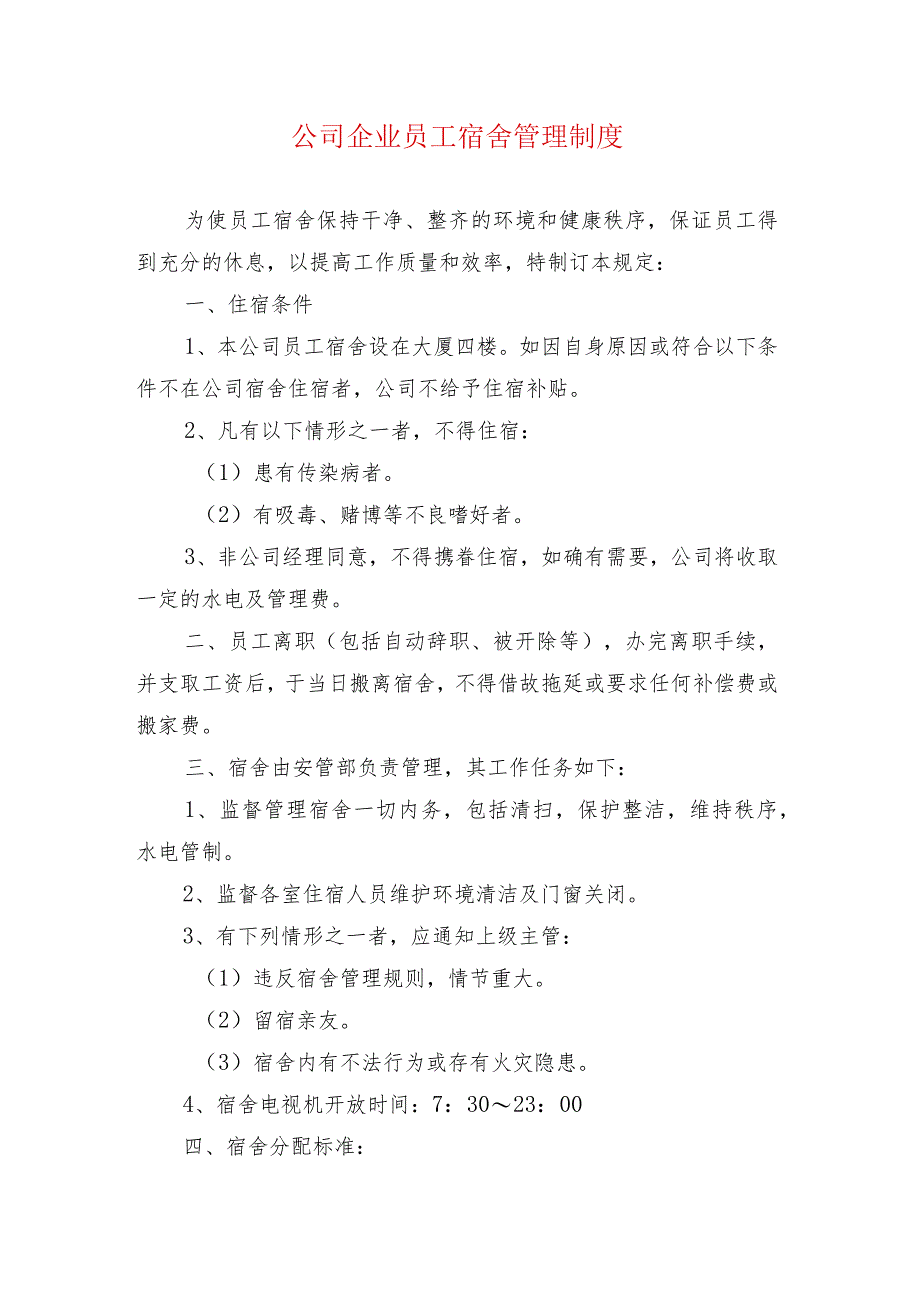 公司企业员工宿舍管理制度
为使员工宿舍保持干净、整齐的环境和健康秩序，保证员工得
到充分的休息，以提高工作质量和效率，特制订本规定：
一、住宿条件
1、本公司员工宿舍设在大厦四楼。如因自身原因或符合以下条
件不在公司宿舍住宿者，公司不给予住宿补贴。
2、凡有以下情形之一者，不得住宿：
（1）患有传染病者。
（2）有吸毒、赌博等不良嗜好者。
3、非公司经理同意，不得携眷住宿，如确有需要，公司将收取
一定的水电及管理费。
二、员工离职（包括自动辞职、被开除等），办完离职手续，
并支取工资后，于当日搬离宿舍，不得借故拖延或要求任何补偿费或
搬家费。
三、宿舍由安管部负责管理，其工作任务如下：
1、监督管理宿舍一切内务，包括清扫，保护整洁，维持秩序，
水电管制。
2、监督各室住宿人员维护环境清洁及门窗关闭。
3、有下列情形之一者，应通知上级主管：
（1）违反宿舍管理规则，情节重大。
（2）留宿亲友。
（3）宿舍内有不法行为或存有火灾隐患。
4、宿舍电视机开放时间：7：30～23：00
四、宿舍分配标准：